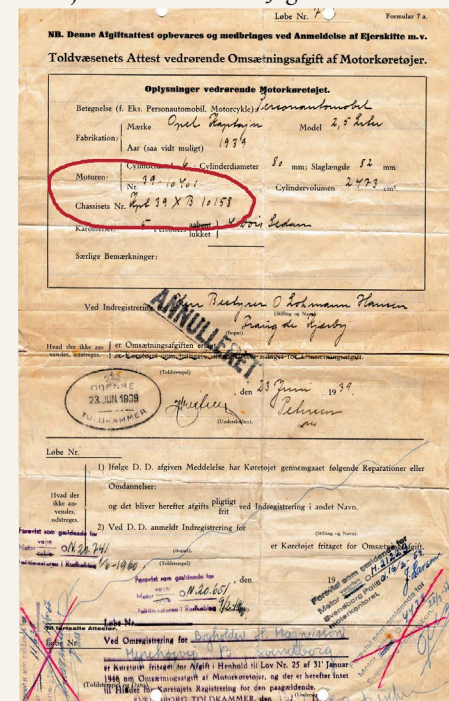 Løbe Nr. 7
Formular 7 a.
NB. Denne Afgiftsattest opbevares og medbringes ved Anmeldelse af Ejerskifte m.v.
Toldvæsenets Attest vedrørende Omsætningsafgift af Motorkøretøjer.
Oplysninger vedrørende Motorkøretøjet.
Betegnelse (f. Eks. Personautomobil, Motorcykle): Personautomobil
Fabrikation: Mærke Opel Kaptajn Model 2,5 Liter
Aar (saa vidt muligt) 1939
Motoren: Cylinderantal 6 Cylinderdiameter 80 mm; Slaglængde 82 mm
Nr. 39-10401 Cylindervolumen 2473 cm³.
Chassisets Nr. Kpt 39 X B 10158
Karosseriet: 5 Personers aabent lukket 4 Dørs Sedan
Særlige Bemærkninger:
Ved Indregistrering Bestyrer O Lohmann Hansen
(Stilling og Navn)
(Bopæl) Frangde Hjærby
ANNULLERET
Hvad der ikke anvendes, udstreges.
er Omsætningsafgiften erlagt
(Toldstempel)
ODENSE
23.JUN.1939
TOLDKAMMER
, den 23 Juni 1939.
Petersen
(Underskrift).
Løbe Nr.
Hvad der ikke anvendes, udstreges.
1) Ifølge D. D. afgiven Meddelelse har Køretøjet gennemgaaet følgende Reparationer eller
Omdannelser:
og det bliver herefter afgifts pligtigt frit ved Indregistrering i andet Navn.
2) Ved D. D. anmeldt Indregistrering for
(Stilling og Navn)
(Bopæl) er Køretøjet fritaget for Omsætningsafgift.
Forevist som gældende for
vogn
Motor ON 20.741
Politimesteren i Rudkøbing
(Toldstempel)
, den 19
Forevist som gældende for
vogn
Motor ON 20.651
Politimesteren i Rudkøbing
Forevist som gældende for
Motor
Svendborg Politi
Motorkontoret,
Til fortsatte Attester.
Løbe Nr.
Løbe Nr.
Ved Omregistrering for Bogholder H. Magnusson
Svendborg
er Køretøjet fritaget for Afgift i Henhold til Lov Nr. 25 af 31' Januar
1946 om Omsætningsafgift af Motorkøretøjer, og der er herefter intet
til Hinder for Køretøjets Registrering for den paagældende.
(Toldstempel og Dato)
SVENDBORG TOLDKAMMER, den